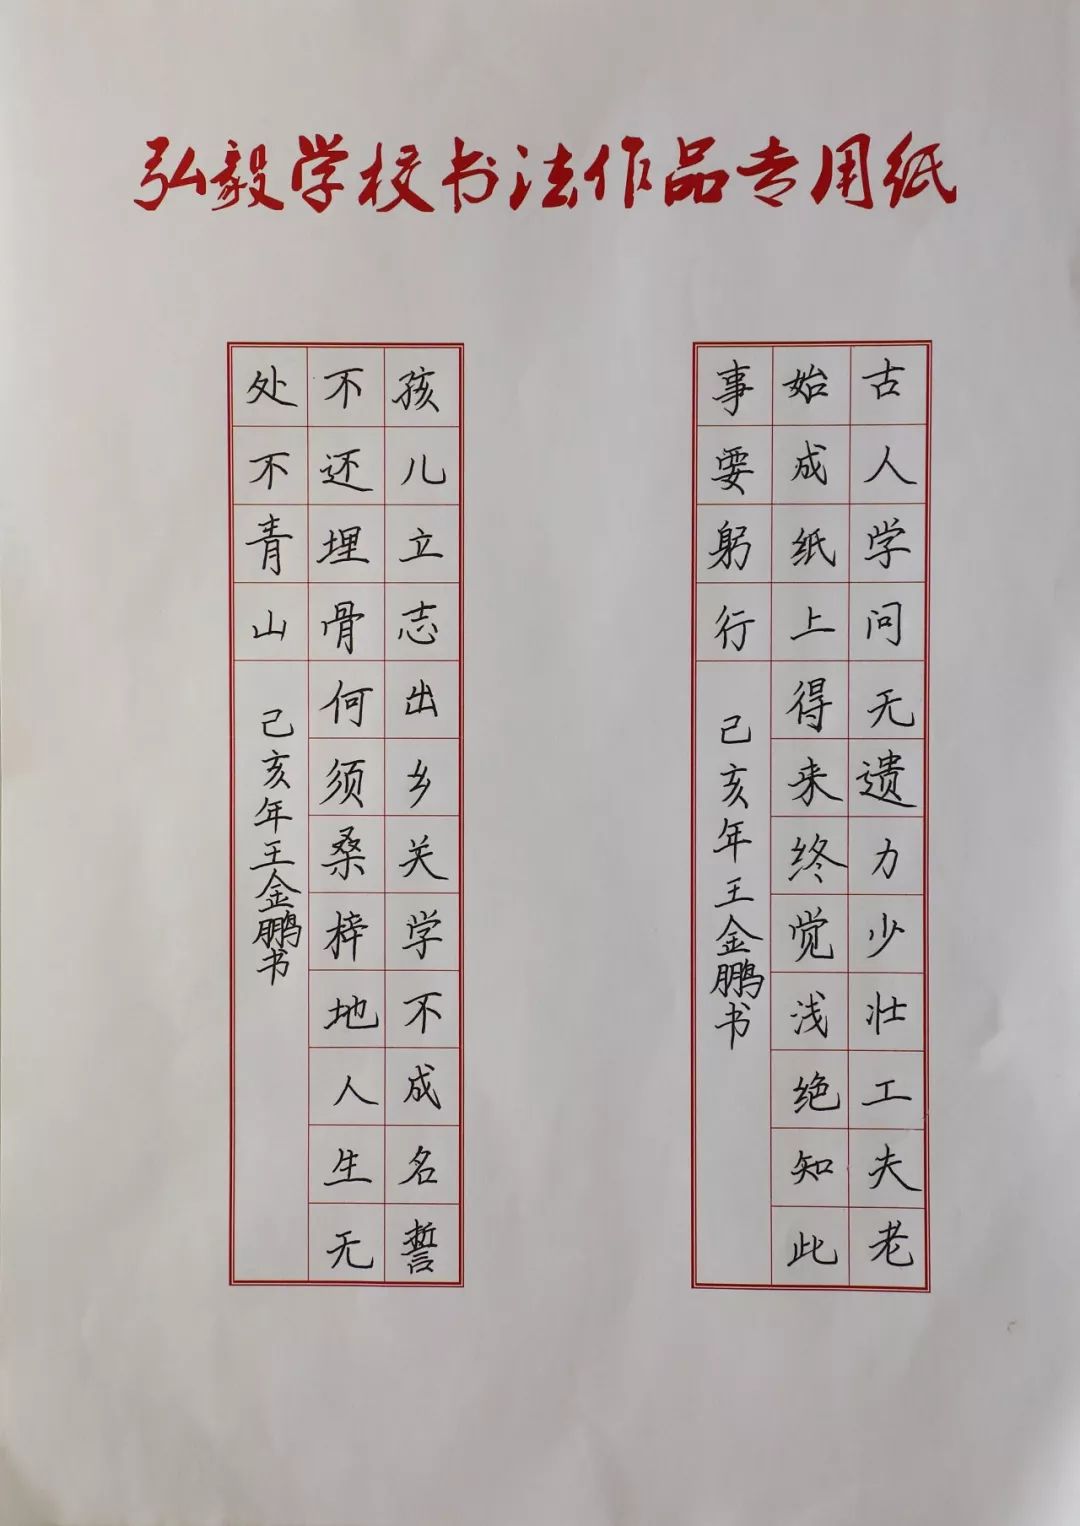 弘毅学校书法作品专用纸
古人学问无遗力少壮工夫老
始成纸上得来终觉浅绝知此
事要躬行
己亥年王金鹏书
孩儿立志出乡关学不成名誓
不还埋骨何须桑梓地人生无
处不青山
己亥年王金鹏书